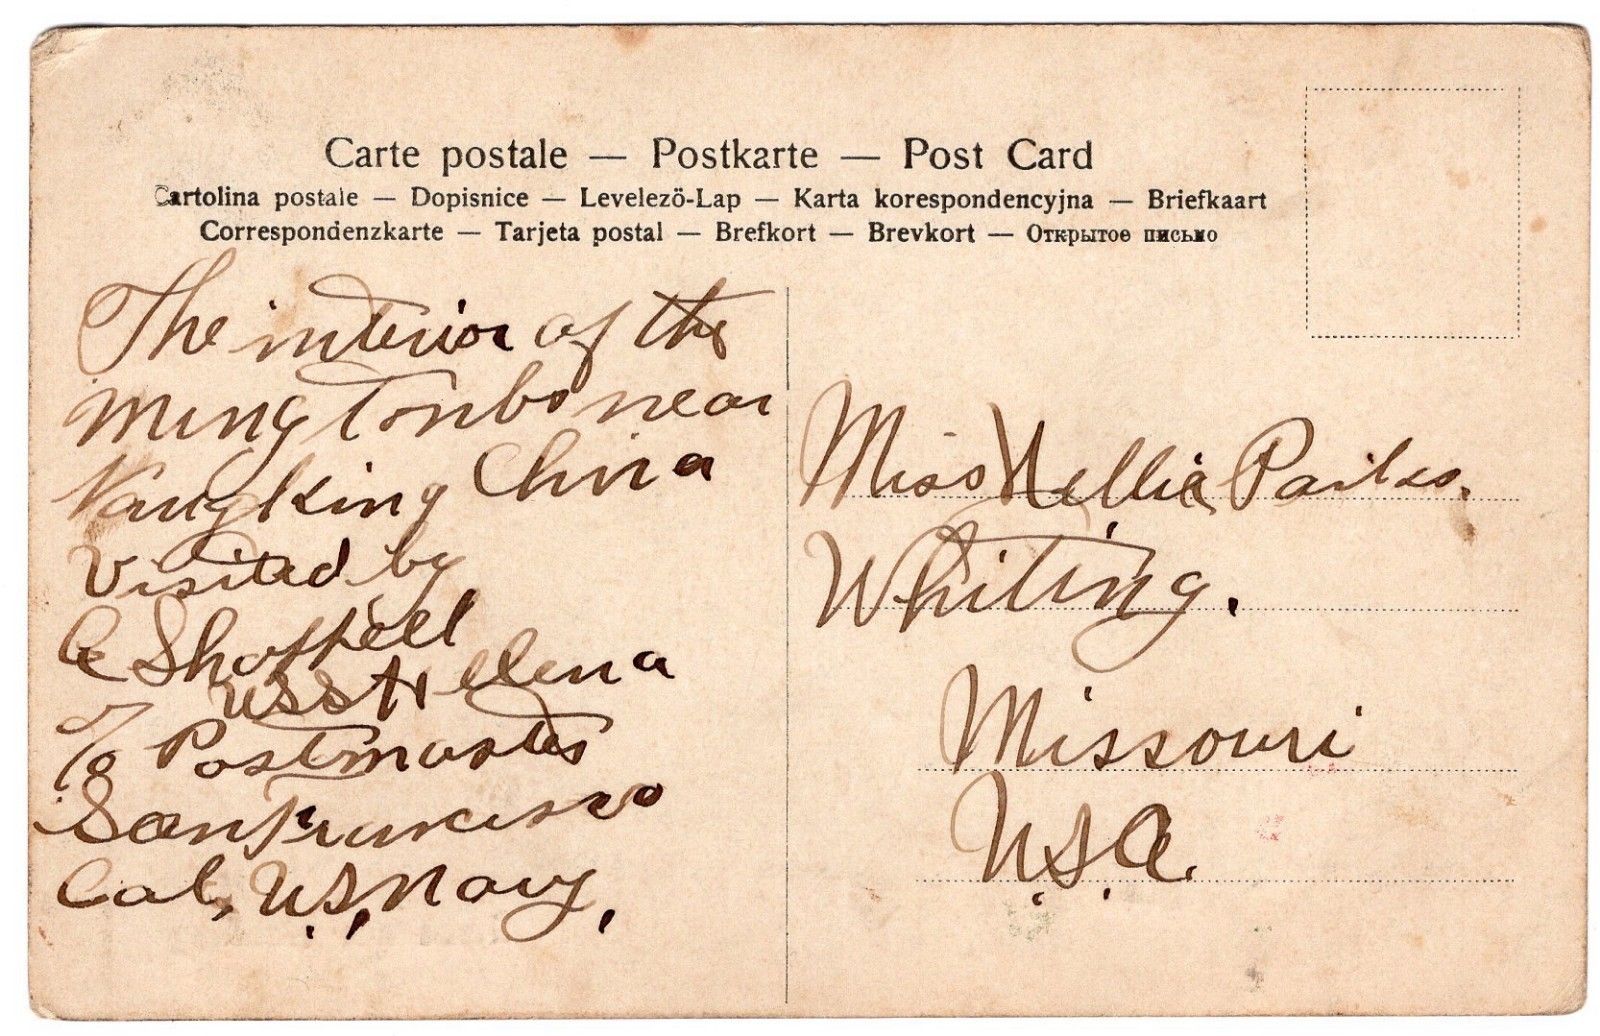 Carte postale — Postkarte — Post Card
Cartolina postale — Dopisnice — Levelező-Lap — Karta korespondencyjna — Briefkaart
Correspondenzkarte — Tarjeta postal — Brefkort — Brevkort — Открытое письмо
The interior of the
Ming Tombs near
Nangking China
Visited by
A Shoffell
USS Hellena
c/o Postmaster
San Francisco
Cal, U.S. Navy.
Miss Nellie
Whiting.
Missouri
U.S.A.